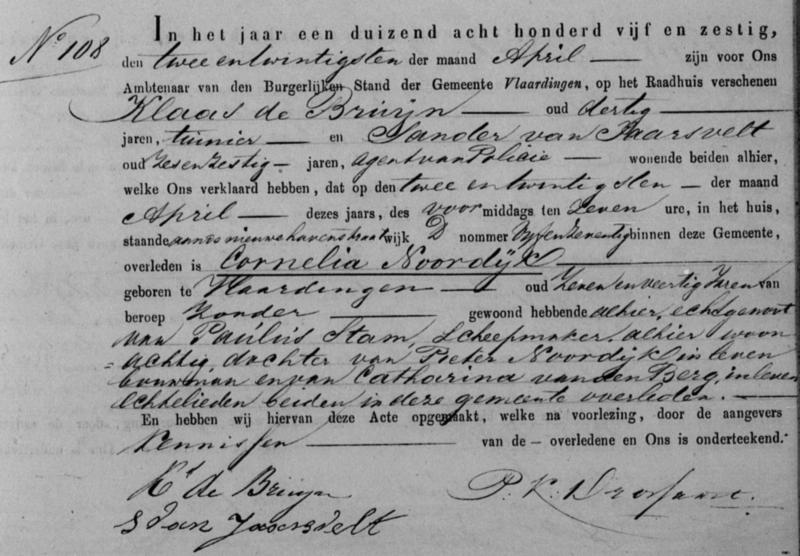 In het jaar een duizend acht honderd vijf en zestig,
No 108
den twee entwintigsten der maand April — zijn voor Ons
Ambtenaar van den Burgerlijken Stand der Gemeente Vlaardingen, op het Raadhuis verschenen
Klaas de Bruijn — oud dertig —
jaren, tuinier — en Sander van Jaarsvelt
oud zesenzestig — jaren, agent van Policie — wonende beiden alhier,
welke Ons verklaard hebben, dat op den twee entwintigsten — der maand
April — dezes jaars, des voormiddags ten zeven ure, in het huis,
staande aan de nieuwehavenstraat wijk D nommer vijfenzeventig binnen deze Gemeente,
overleden is Cornelia Noordijk —
geboren te Vlaardingen — oud zeven enveertig Jaren van
beroep zonder — gewoond hebbende alhier, echtgenoot
van Paulus Stam, scheepmaker, alhier woon
=achtig, dochter van Pieter Noordijk in leven
bouwman en van Catharina van den Berg, in leven
echtelieden beiden in deze gemeente overleden. —
En hebben wij hiervan deze Acte opgemaakt, welke na voorlezing, door de aangevers
kennissen — van de — overledene en Ons is onderteekend.
Ks de Bruijn P. K. Drossaart.
S Van Jaarsvelt